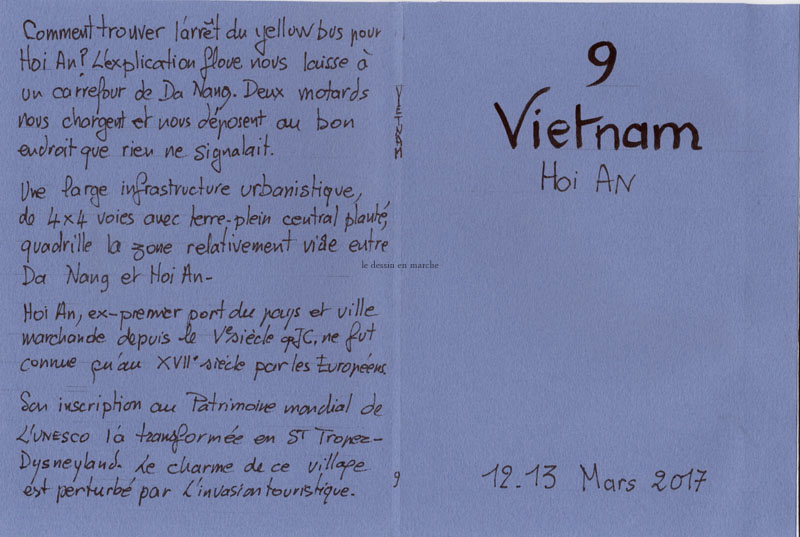 Comment trouver l'arrêt du yellow bus pour
Hoi An? L'explication floue nous laisse à
un carrefour de Da Nang. Deux motards
nous chargent et nous déposent au bon
endroit que rien ne signalait.
Une large infrastructure urbanistique,
de 4x4 voies avec terre-plein central planté,
quadrille la zone relativement vide entre
Da Nang et Hoi An-
Hoi An, ex-premier port du pays et ville
marchande depuis le Ve siècle apJC, ne fut
connue qu'au XVIIe siècle par les Européens.
Son inscription au Patrimoine mondial de
L'UNESCO l'a transformée en ST Tropez-
Dysneyland. Le charme de ce village
est perturbé par l'invasion touristique.
VIETNAM
9
le dessin en marche
9
Vietnam
Hoi AN
12-13 Mars 2017